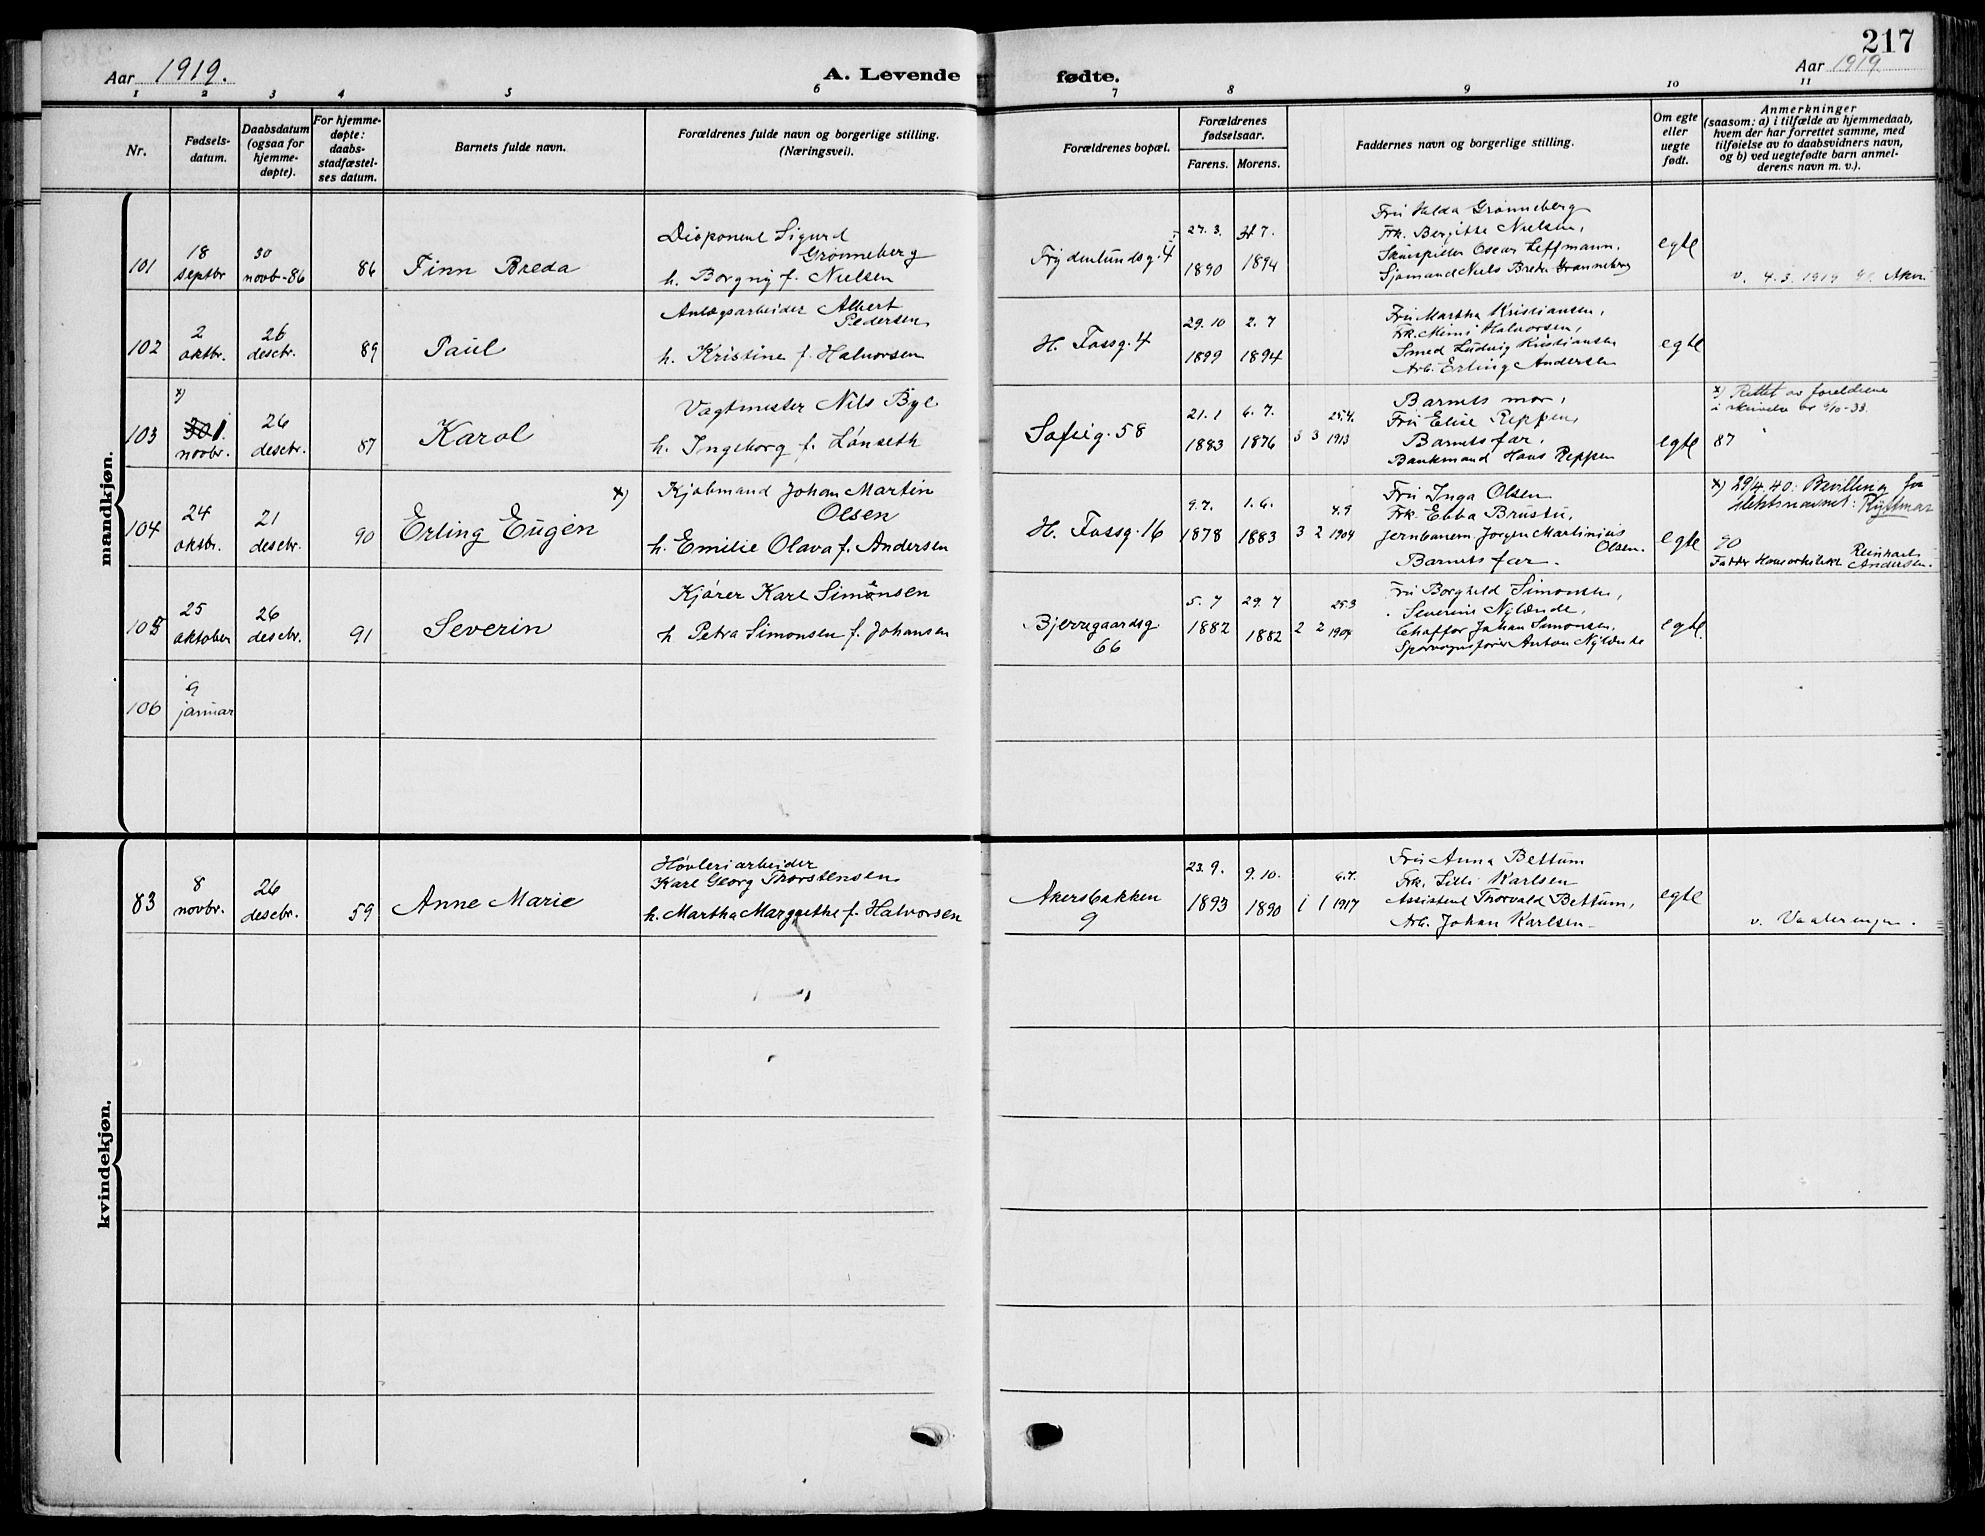 217
Aar 1919.
A. Levende fødte.
Aar 1919
1 2 3 4 5 6 7 8 9 10 11
Nr.
Fødsels-
datum.
Daabsdatum
(ogsaa for
hjemme-
døpte).
For hjemme-
døpte:
daabs-
stadfæstel-
ses datum.
Barnets fulde navn.
Forældrenes fulde navn og borgerlige stilling.
(Næringsvei).
Forældrenes bopæl.
Forældrenes
fødselsaar.
Farens. Morens.
Faddernes navn og borgerlige stilling.
Om egte
eller
uegte
født.
Anmerkninger
(saasom: a) i tilfælde av hjemmedaab,
hvem der har forrettet samme, med
tilføielse av to daabsvidners navn,
og b) ved uegtefødte barn anmel-
derens navn m. v.).
mandkjøn.
101
18
septbr
30
novb-86
86
Finn Breda
Disponent Sigurd
Grønneberg
h. Borgny f. Nielsen
Frydenlundsg. 4
27. 3.
1890
7.
1894
Fru Halda Grønneberg
Frk. Bergitte Nielsen,
Skuespiller Oscar Leffmann.
Sjømand Niels Breda Grønneberg
egte
v. 4. 3. 1919 Aker
102
2
oktbr.
26
desebr.
89
Paul
Anlægsarbeider Albert
Pedersen,
h. Kristine f. Halvorsen
H. Fossg. 4
29. 10
1899
2. 7
1894
Fru Martha Kristiansen,
Frk. Mimi Halvorsen,
Smed Ludvig Kristiansen
Arb. Erling Andersen
egte
103
x)
30 1.
novbr.
26
desebr.
87
Karol
Vagtmester Nils Bye
h. Ingeborg f. Lønseth
Sofieg. 58
21. 1
1883
6. 7.
1876
3 3
25.4.
1913
Barnets mor,
Fru Elise Reppen,
Barnets far,
Bankmand Hans Reppen
egte
x) Rettet av foreldrene
i skrivelse av 9/10-33.
87
104
24
oktbr.
21
desebr.
90
Erling Eugen x)
Kjøbmand Johan Martin
Olsen
h. Emilie Olava f. Andersen
H. Fossg. 16
9. 7.
1878
1. 6.
1883
3 2
4.9
1904
Fru Inga Olsen
Frk. Ebba Brustu,
Jernbanem Jørgen Martinius
Olsen.
Barnets far.
egte
x) 29/4.40: Bevilling for
slektsnavnet:
90
Reinhart
Andersen.
105
25
oktober
26
desebr.
91
Severin
Kjører Karl Simonsen
h Petra Simonsen f. Johansen
Bjerregaardsg
66
5. 7
1882
29. 7
1882
2 2
25.3
1904
Fru Borghild Simonsen,
Severine Nylænde,
Chaffør Johan Simonsen,
Sporvognsfører Anton Nylænde
egte
106
9
januar
kvindekjøn.
83
8
novbr.
26
desebr.
59
Anne Marie
Høvleriarbeider
Karl Georg Thorstensen
h. Martha Margrethe f. Halvorsen
Akersbakken
9
23. 9.
1893
9. 10.
1890
1 1
6.7.
1917
Fru Anna Bettum
Frk. Lilli Karlsen
Assistent Thorvald Bettum,
Arb. Johan Karlsen
egte
v. Vaalerengen.